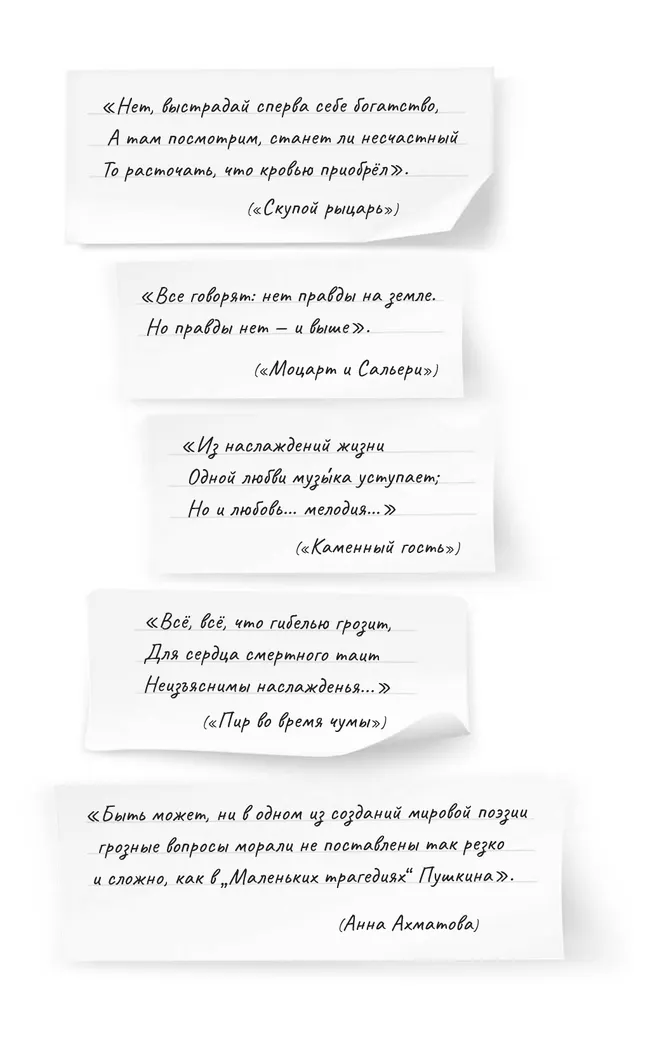 «Нет, выстрадай сперва себе богатство,
А там посмотрим, станет ли несчастный
То расточать, что кровью приобрёл».
(«Скупой рыцарь»)
«Все говорят: нет правды на земле.
Но правды нет – и выше».
(«Моцарт и Сальери»)
«Из наслаждений жизни
Одной любви музы́ка уступает;
Но и любовь... мелодия...»
(«Каменный гость»)
«Всё, всё, что гибелью грозит,
Для сердца смертного таит
Неизъяснимы наслажденья...»
(«Пир во время чумы»)
«Быть может, ни в одном из созданий мировой поэзии
грозные вопросы морали не поставлены так резко
и сложно, как в „Маленьких трагедиях“ Пушкина».
(Анна Ахматова)